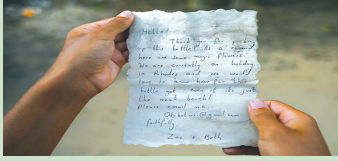 Hello!
Thank you for picking
up this bottle! As a reward
here are some magic flowers.
We are currently on holiday
in Rhodes and we would
love to know how far this
bottle got even if its just
the next beach!
Please email me
@gmail.com
faithfully
Zoe + Beth